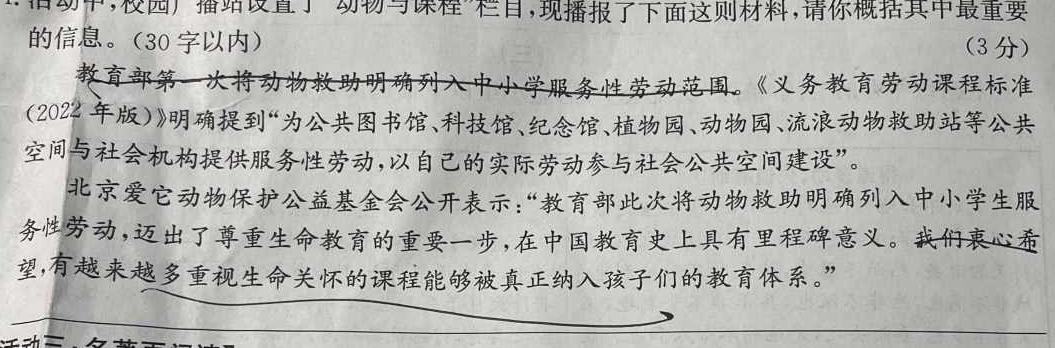 活动中，校园广播站设置了“动物与课程”栏目，现播报了下面这则材料，请你概括其中最重要
的信息。（30字以内）（3分）
教育部第一次将动物救助明确列入中小学服务性劳动范围。《义务教育劳动课程标准
（2022年版）》明确提到“为公共图书馆、科技馆、纪念馆、植物园、动物园、流浪动物救助站等公共
空间与社会机构提供服务性劳动，以自己的实际劳动参与社会公共空间建设”。
北京爱它动物保护公益基金会公开表示：“教育部此次将动物救助明确列入中小学生服
务性劳动，迈出了尊重生命教育的重要一步，在中国教育史上具有里程碑意义。我们衷心希
望，有越来越多重视生命关怀的课程能够被真正纳入孩子们的教育体系。”